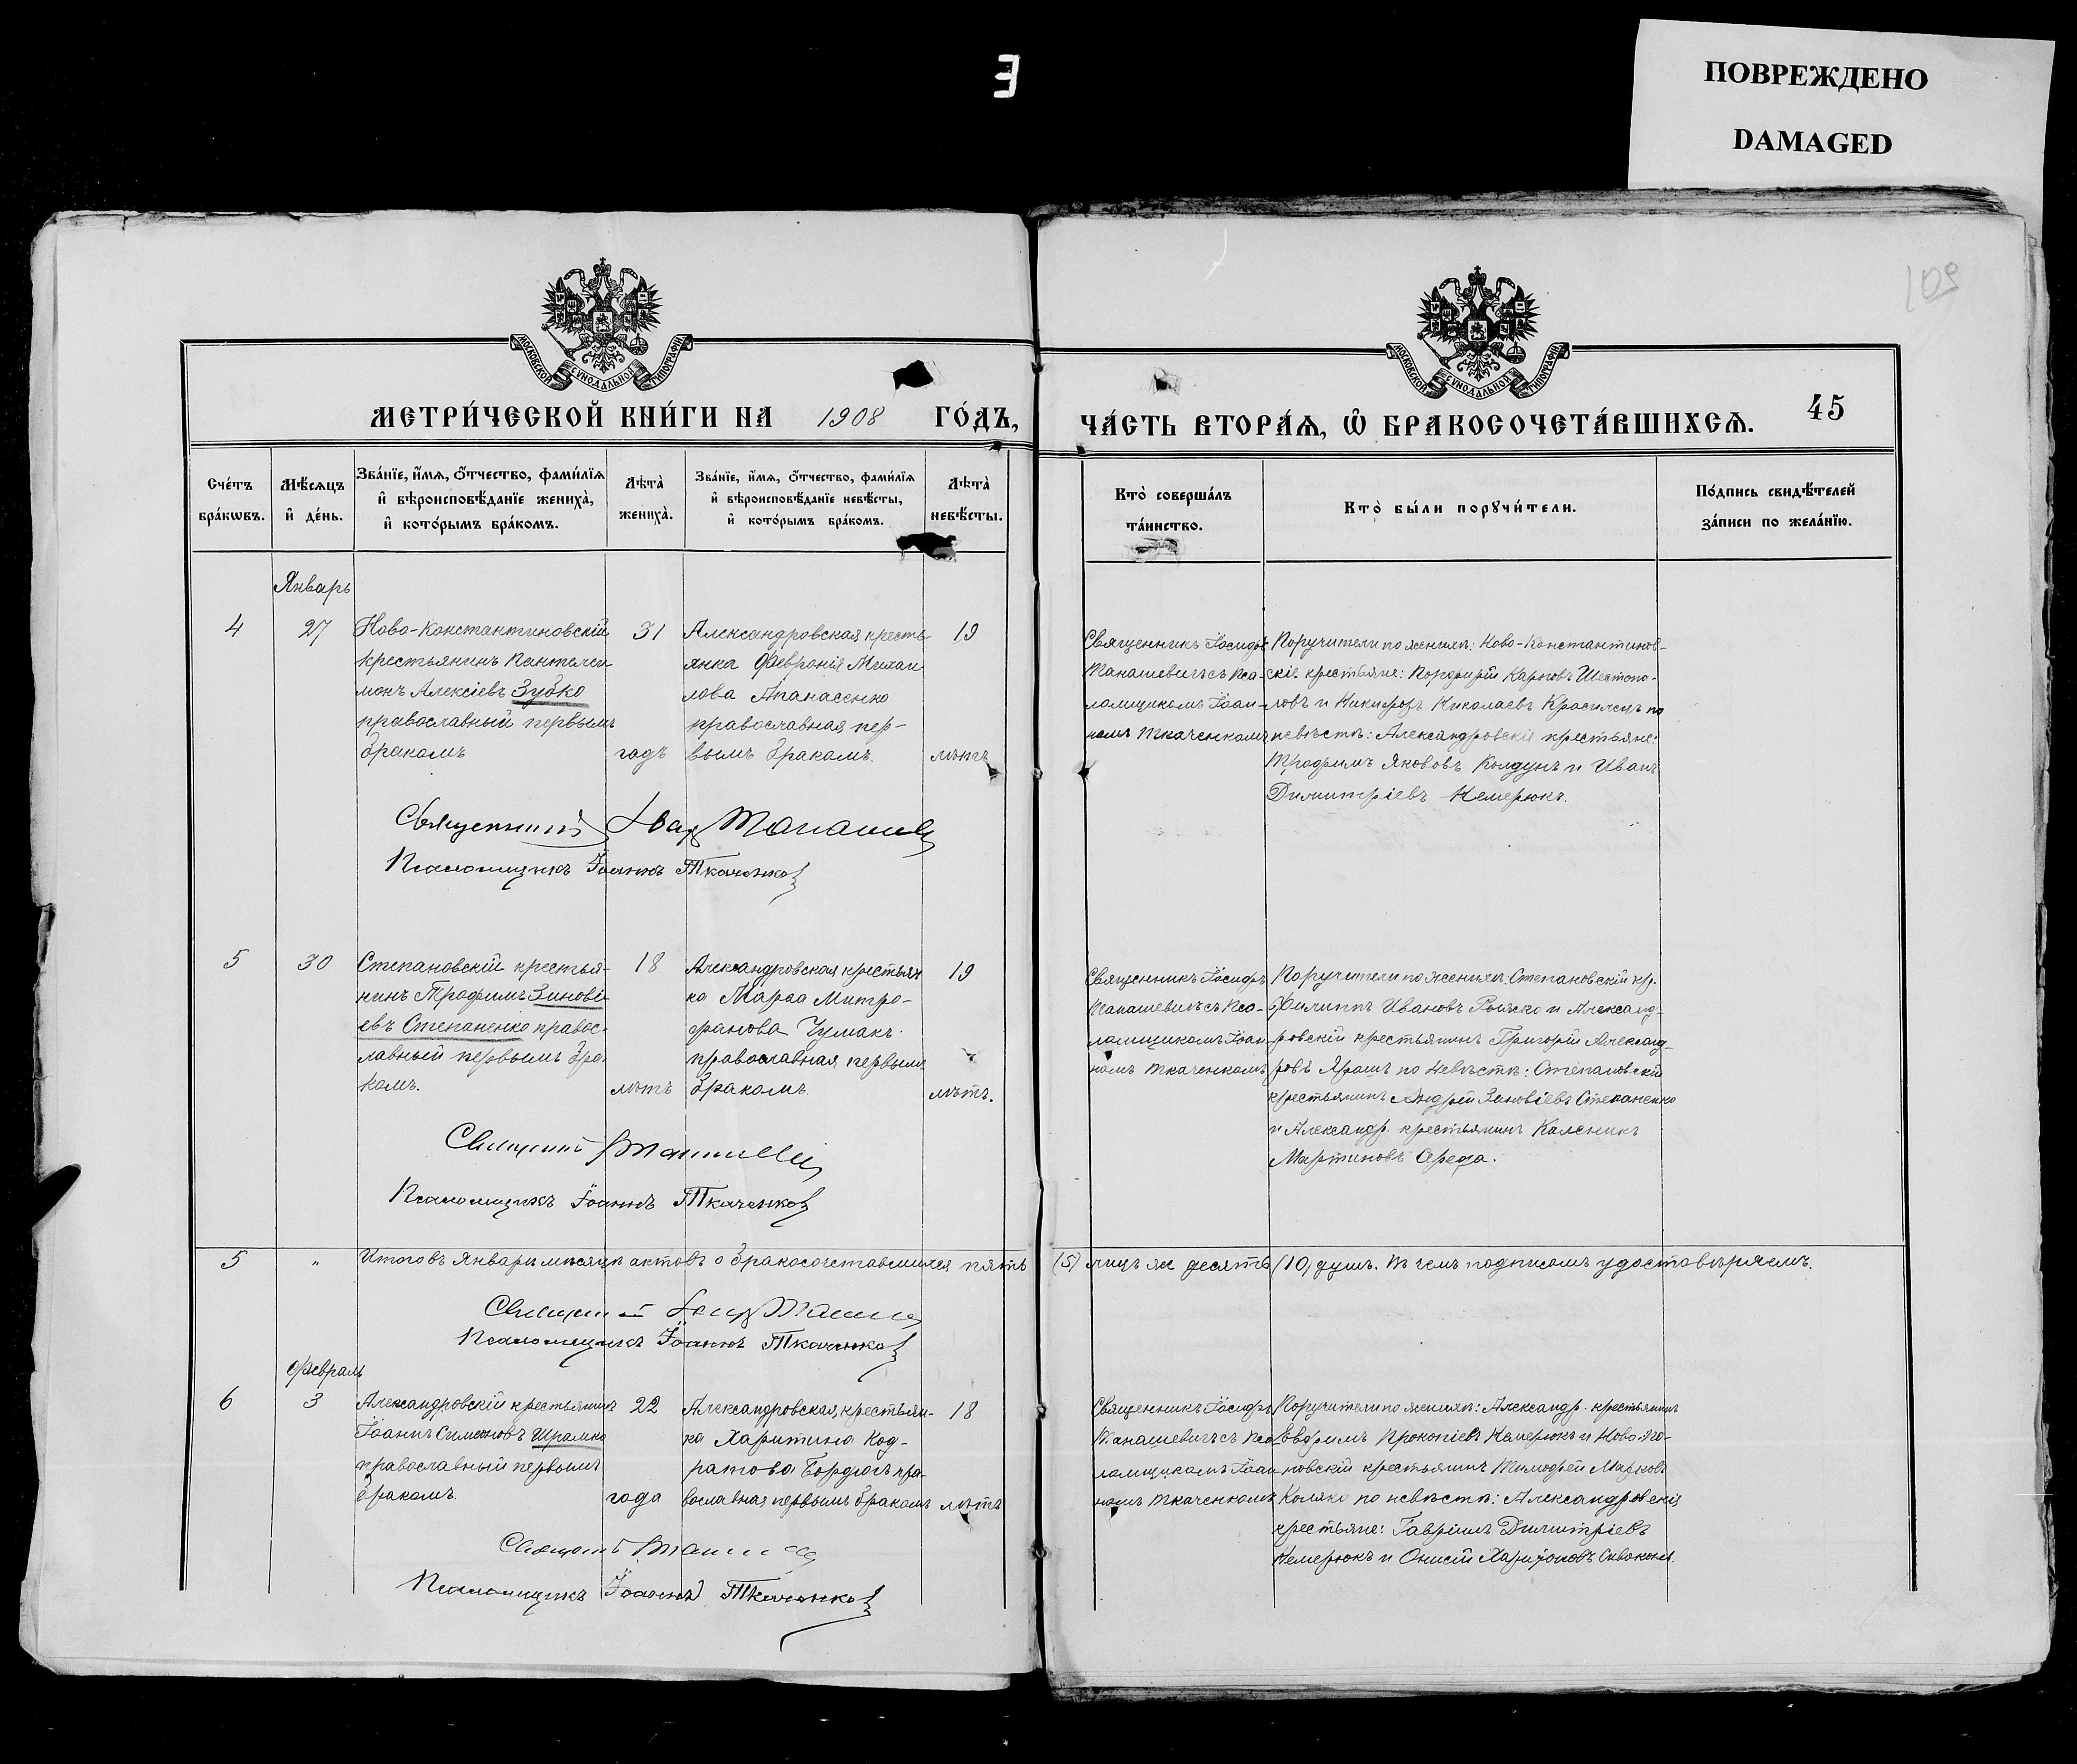 ПОВРЕЖДЕНО
DAMAGED
Е
109
МОСКОВСКОЙ СѴНОДАЛЬНОЙ ТИПОГРАФІИ
МОСКОВСКОЙ СѴНОДАЛЬНОЙ ТИПОГРАФІИ
МЕТРИ́ЧЕСКОЙ КНИ́ГИ НА 1908 ГО́ДЪ,
ЧА́СТЬ ВТОРА́Ѧ, Ѽ БРАКОСОЧЕТА́ВШИХСѦ.
45
Сче́тъ
бра́кѡвъ.
Мѣ́сяцъ
и҆ де́нь.
Зва́нїе, и҆́мѧ, ѻ҆́тчество, фами́лїѧ
и҆ вѣроисповѣ́данїе жениха̀,
и҆ кото́рымъ бра́комъ.
Лѣта̀
жениха̀.
Зва́нїе, и҆́мѧ, ѻ҆́тчество, фами́лїѧ
и҆ вѣроисповѣ́данїе невѣ́сты,
и҆ кото́рымъ бра́комъ.
Лѣта̀
невѣ́сты.
Кто̀ соверша́лъ
та́инство.
Кто̀ бы́ли порꙋчи́тели.
По́дпись свидѣ́телей
за́писи по жела́нїю.
Январь
4
27
Ново-Константиновскій
крестьянинъ Пантелеи
монъ Алексіевъ Зубко
православный первымъ
бракомъ
31
годъ
Александровская кресть
янка Февронія Михаи
лова Апанасенко
православная пер-
вымъ бракомъ.
19
лѣтъ
Священникъ Іосифъ
Манашевичъ съ Пса-
ломщикомъ Іоан-
номъ Ткаченкомъ
Поручители по женихѣ: Ново-Константинов-
скіе крестьяне: Порфирій Карповъ Шаѳтопо-
ловъ и Никифоръ Николаевъ Красилецъ по
невѣстѣ: Александровскіе крестьяне:
Трофимъ Яковъ Колдунъ и Иванъ
Димитріевъ Немерюкъ.
Священникъ
Псаломщикъ Іоаннъ Ткаченко
5
30
Степановскій крестья-
нинъ Трофимъ Зиновіе
евъ Степаненко правос-
лавный первымъ бра-
комъ.
18
лѣтъ
Александровская крестьян
ка Марѳа Митро-
фанова Чумакъ
православная первымъ
бракомъ.
19
лѣтъ.
Священникъ Іосифъ
Манашевичъ съ Пса-
ломщикомъ Іоан
номъ Ткаченкомъ
Поручители по женихѣ: Степановскій кр.
Филиппъ Ивановъ и Александ-
ровскій крестьянинъ Григорій Александ-
ровъ Ярошъ по невѣстѣ: Степановскій
крестьянинъ Андрей Зиновіевъ Степаненко
и Александр. крестьянинъ Каленикъ
Мартиновъ Середа.
Священникъ
Псаломщикъ Іоаннъ Ткаченко
5 " Итого въ Январѣ мѣсяцѣ актовъ о бракосочетавшихся пять (5) лицъ же десять (10) душъ. Въ чемъ подписомъ удостовѣряемъ.
Священникъ
Псаломщикъ Іоаннъ Ткаченко
Февраль
6
3
Александровскій крестьянинъ
Іоаннъ Симеоновъ Шрамко
православный первымъ
бракомъ.
22
года
Александровская крестьян-
ка Харитина Код-
ратова Бордюгъ пра-
вославная первымъ бракомъ
18
лѣтъ
Священникъ Іосифъ
Манашевичъ съ Пса
ломщикомъ Іоан
номъ Ткаченкомъ
Поручители по женихѣ: Александр. крестьянинъ
Ефримъ Прокопіевъ Немерюкъ и Ново-Яго-
новскій крестьянинъ Тимофей Марковъ
Коляко по невѣстѣ: Александровскіе
крестьяне: Гавріилъ Димитріевъ
Немерюкъ и Онисій Харитоновъ Сивоконь.
Священникъ
Псаломщикъ Іоаннъ Ткаченко